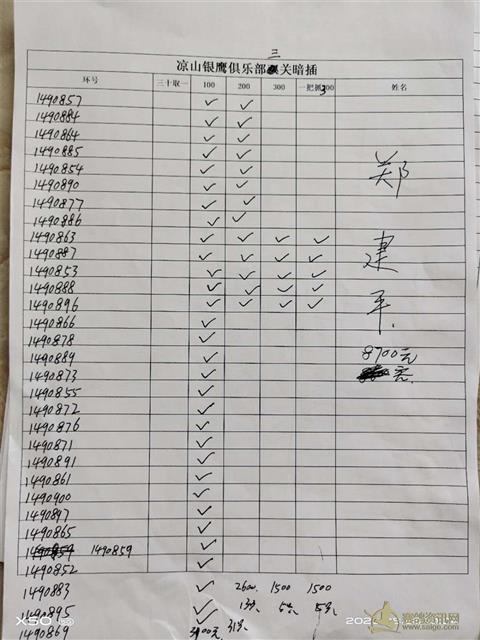 三
凉山银鹰俱乐部关暗插
环号 三十取一 100 200 300 一把抓300 姓名
1490857 ✓ ✓
1490884 ✓ ✓
1490864 ✓ ✓
1490885 ✓ ✓
1490854 ✓ ✓
1490890 ✓ ✓
1490877 ✓ ✓
1490886 ✓ ✓
1490863 ✓ ✓ ✓ ✓
1490887 ✓ ✓ ✓ ✓
1490853 ✓ ✓ ✓ ✓
1490888 ✓ ✓ ✓ ✓
1490896 ✓ ✓ ✓ ✓
郑建平
1490866 ✓
1490878 ✓
1490889 ✓ 8700元
1490873 ✓ 元
1490855 ✓
1490872 ✓
1490876 ✓
1490871 ✓
1490891 ✓
1490861 ✓
1490900 ✓
1490897 ✓
1490865 ✓
1490859 ✓
1490852 ✓
1490883 ✓ 2600 1500 1500
1490895 ✓ 13羽 5羽 5羽
1490869 3100元 31羽
X50
赛鸽资讯网
www.saige.com